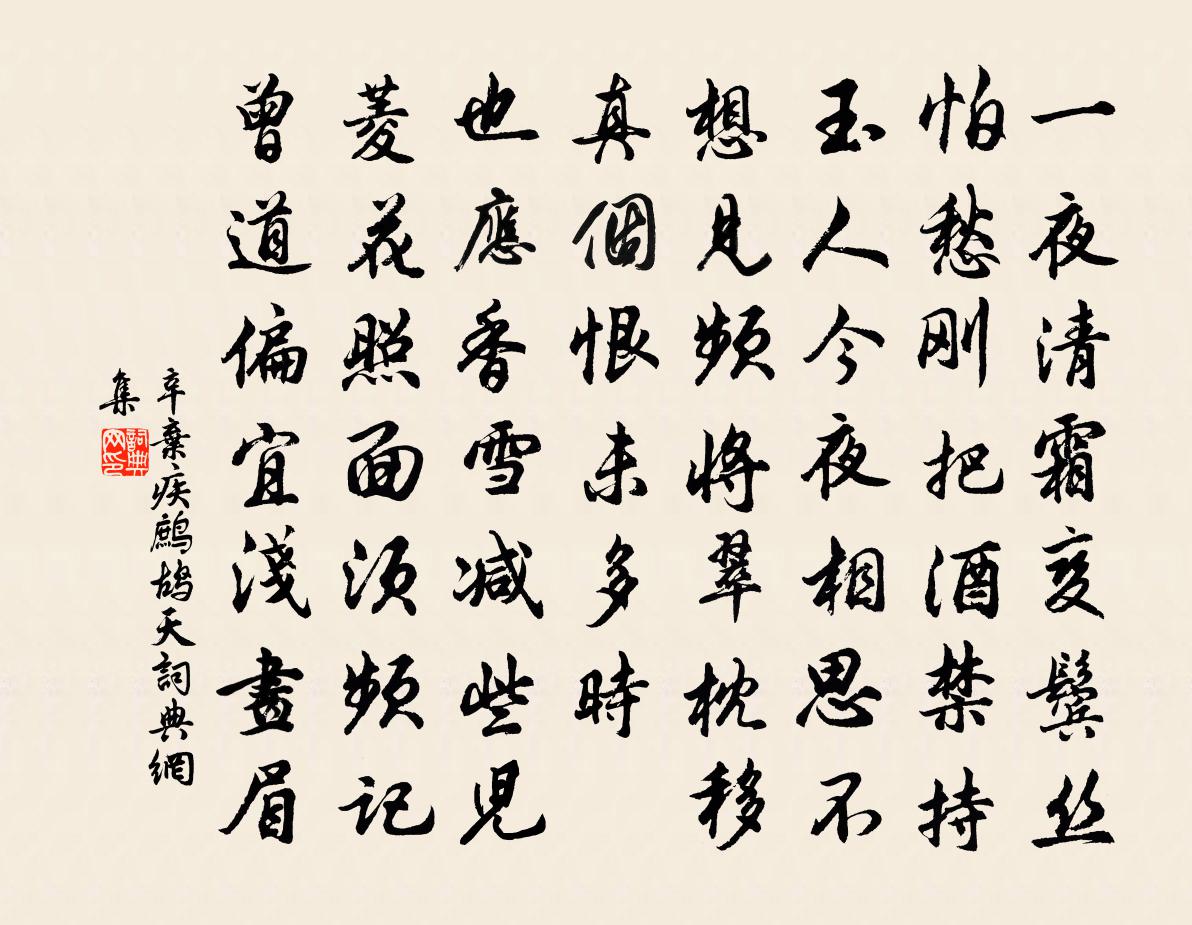 一夜清霜变鬓丝
怕愁刚把酒禁持
玉人今夜相思不
想見頻將翠枕移
真個恨未多時
也應香雪减些兒
菱花照面須頻記
曾道偏宜淺畫眉
辛棄疾鷓鴣天詞典網
集
詞典
网印